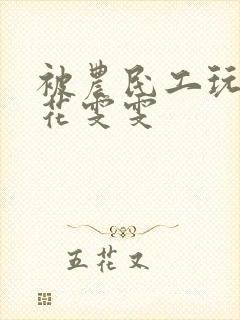 被农民工玩
花雯雯
五花又